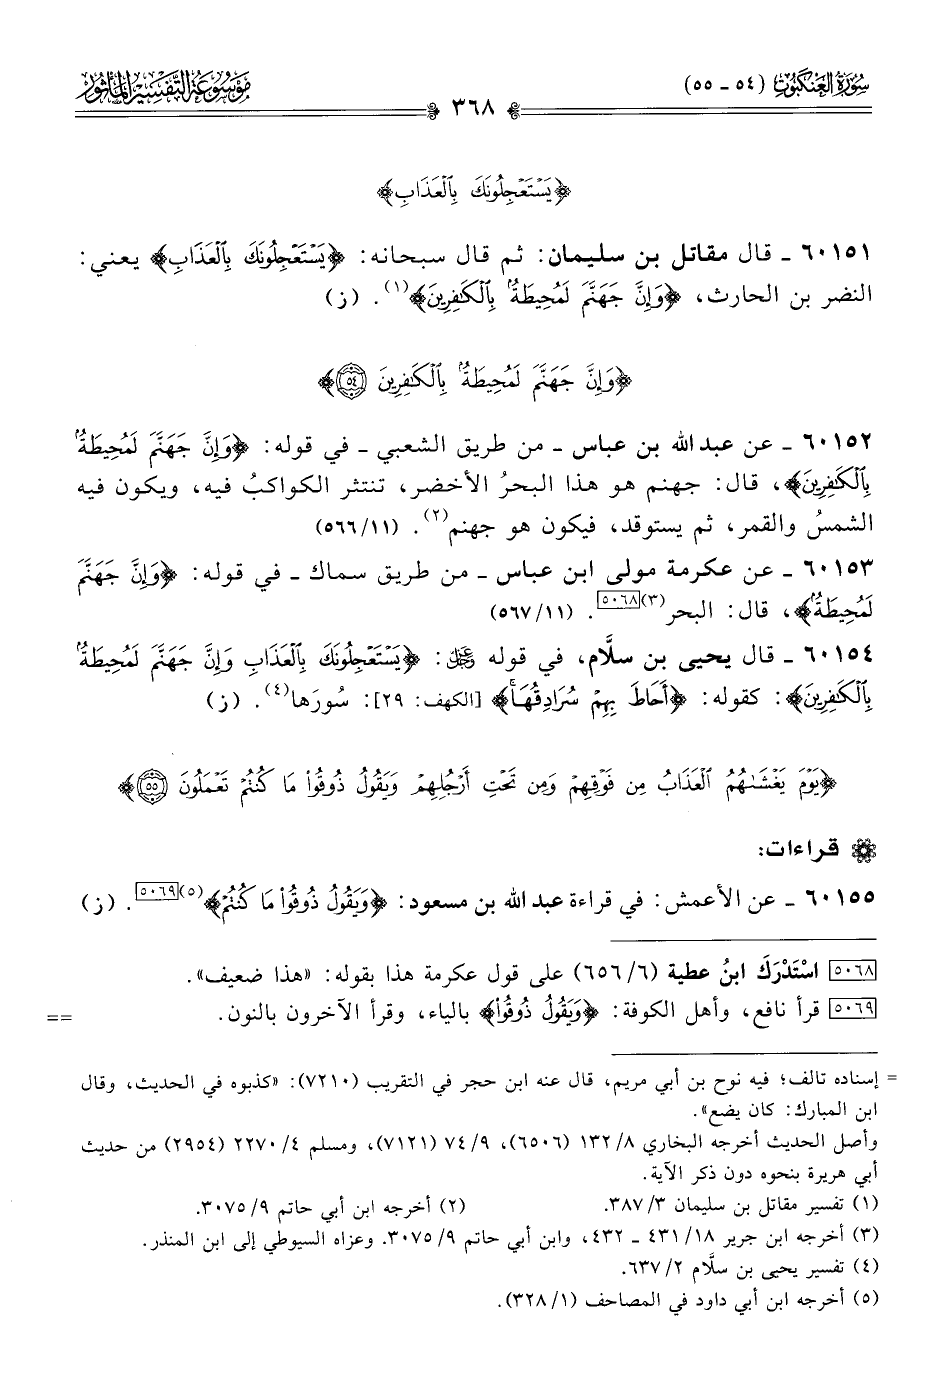 سُورَةُ العَنْكَبُوتِ (٥٤ - ٥٥)
٣٦٨
مَوْسُوعَةُ التَّفْسِيرِ المَأْثُورِ
﴿يَسْتَعْجِلُونَكَ بِالْعَذَابِ﴾
٦٠١٥١ - قال مقاتل بن سليمان: ثم قال سبحانه: ﴿يَسْتَعْجِلُونَكَ بِالْعَذَابِ﴾ يعني:
النضر بن الحارث، ﴿وَإِنَّ جَهَنَّمَ لَمُحِيطَةٌ بِالْكَافِرِينَ﴾(١). (ز)
﴿وَإِنَّ جَهَنَّمَ لَمُحِيطَةٌ بِالْكَافِرِينَ ٥٤﴾
٦٠١٥٢ - عن عبد الله بن عباس - من طريق الشعبي - في قوله: ﴿وَإِنَّ جَهَنَّمَ لَمُحِيطَةٌ
بِالْكَافِرِينَ﴾، قال: جهنم هو هذا البحرُ الأخضر، تنتثر الكواكبُ فيه، ويكون فيه
الشمسُ والقمر، ثم يستوقد، فيكون هو جهنم(٢). (٥٦٦/١١)
٦٠١٥٣ - عن عكرمة مولى ابن عباس - من طريق سماك - في قوله: ﴿وَإِنَّ جَهَنَّمَ
لَمُحِيطَةٌ﴾، قال: البحر(٣)[٥٠٦٨]. (٥٦٧/١١)
٦٠١٥٤ - قال يحيى بن سلَّام، في قوله ﷻ: ﴿يَسْتَعْجِلُونَكَ بِالْعَذَابِ وَإِنَّ جَهَنَّمَ لَمُحِيطَةٌ
بِالْكَافِرِينَ﴾: كقوله: ﴿أَحَاطَ بِهِمْ سُرَادِقُهَا﴾ [الكهف: ٢٩]: سُورَها(٤). (ز)
﴿يَوْمَ يَغْشَاهُمُ الْعَذَابُ مِن فَوْقِهِمْ وَمِن تَحْتِ أَرْجُلِهِمْ وَيَقُولُ ذُوقُوا مَا كُنتُمْ تَعْمَلُونَ ٥٥﴾
قراءات:
٦٠١٥٥ - عن الأعمش: في قراءة عبد الله بن مسعود: ﴿وَيَقُولُ ذُوقُوا مَا كُنتُمْ﴾(٥)[٥٠٦٩]. (ز)
[٥٠٦٨] اسْتَدْرَكَ ابنُ عطية (٦/ ٦٥٦) على قول عكرمة هذا بقوله: «هذا ضعيف».
[٥٠٦٩] قرأ نافع، وأهل الكوفة: ﴿وَيَقُولُ ذُوقُوا﴾ بالياء، وقرأ الآخرون بالنون. ==
= إسناده تالف؛ فيه نوح بن أبي مريم، قال عنه ابن حجر في التقريب (٧٢١٠): «كذبوه في الحديث، وقال
ابن المبارك: كان يضع».
وأصل الحديث أخرجه البخاري ٨/ ١٣٢ (٦٥٠٦)، ٩/ ٧٤ (٧١٢١)، ومسلم ٤/ ٢٢٧٠ (٢٩٥٤) من حديث
أبي هريرة بنحوه دون ذكر الآية.
(١) تفسير مقاتل بن سليمان ٣/ ٣٨٧. (٢) أخرجه ابن أبي حاتم ٩/ ٣٠٧٥.
(٣) أخرجه ابن جرير ١٨/ ٤٣١ - ٤٣٢، وابن أبي حاتم ٩/ ٣٠٧٥. وعزاه السيوطي إلى ابن المنذر.
(٤) تفسير يحيى بن سلَّام ٢/ ٦٣٧.
(٥) أخرجه ابن أبي داود في المصاحف (١/ ٣٢٨).